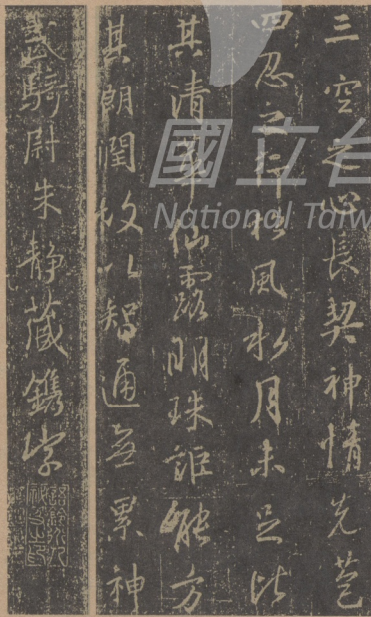 三空之心長契神情先苞
四忍之行松風水月未足比
其清華仙露明珠詎能方
其朗潤故以智通無累神
武騎尉朱靜藏鐫字
國立台
National Taiw